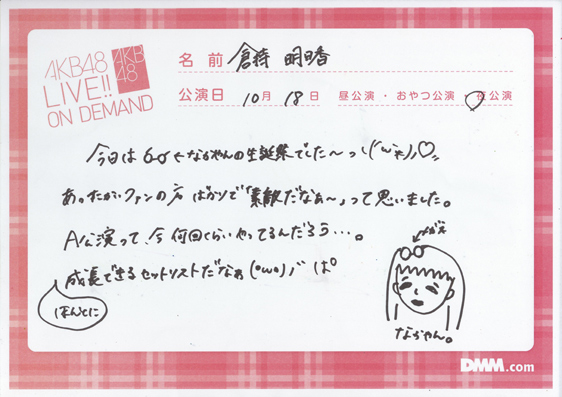 AKB48
LIVE!!
ON DEMAND
AKB
48
名前 倉持 明日香
公演日 10月 18日 昼公演・おやつ公演・夜公演
今日は なちゃんの生誕祭でした〜っ
あったかいファンの方ばかりで「素敵だなぁ〜」って思いました。
A公演って、今 何回くらいやってるんだろう…。
成長できるセットリストだなぁ(°ω°)ノ ぱ°
ほんとに
DMM.com